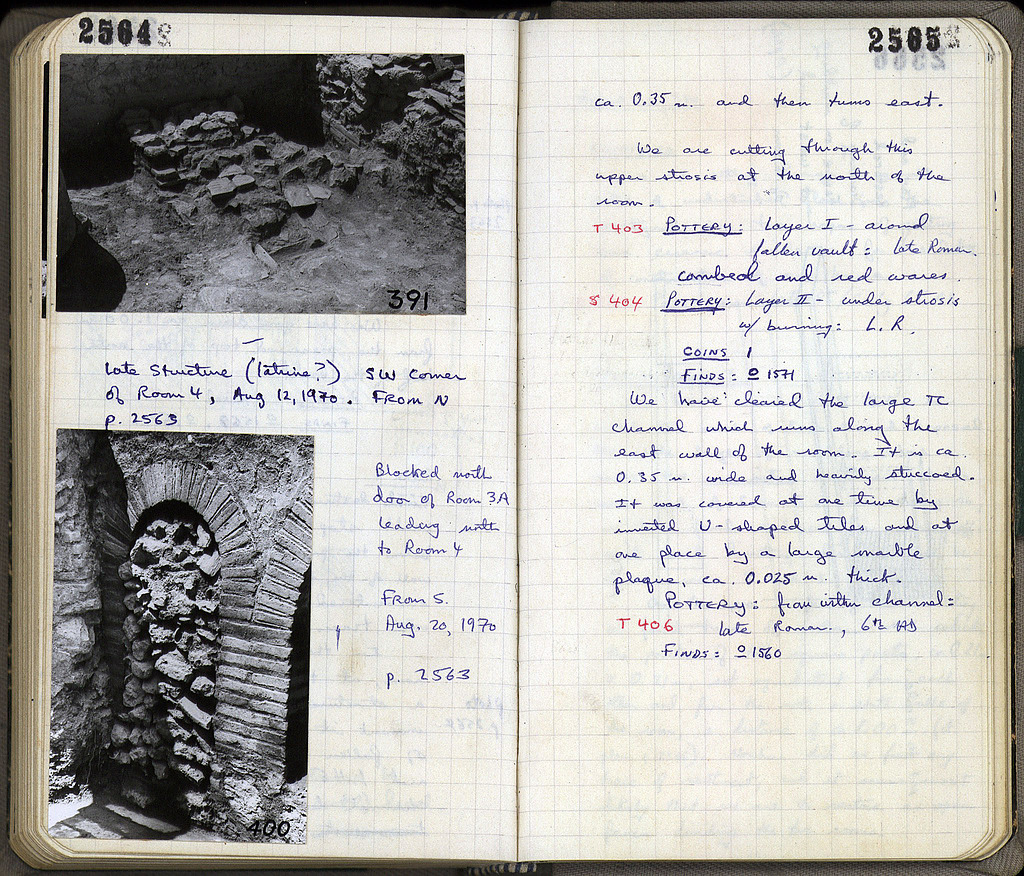 2564
391
Late Structure (latrine?) SW Corner
of Room 4, Aug 12, 1970. FROM N
p. 2563
Blocked north
door of Room 3A
leading north
to Room 4
From S.
Aug. 20, 1970
p. 2563
400
2565
ca. 0.35 m. and then turns east.
We are cutting through this
upper strosis at the north of the
room.
T 403 POTTERY: Layer I - around
fallen vault: late Roman.
combed and red wares.
S 404 POTTERY: Layer II - under strosis
w/ burning: L.R.
COINS 1
FINDS: 1571
We have cleared the large TC
channel which runs along the
east wall of the room. It is ca.
0.35 m. wide and heavily stuccoed.
It was covered at one time by
inverted U-shaped tiles and at
one place by a large marble
plaque, ca. 0.025 m. thick.
POTTERY: from within channel:
T 406 late Roman., 6th AD
FINDS: 1560